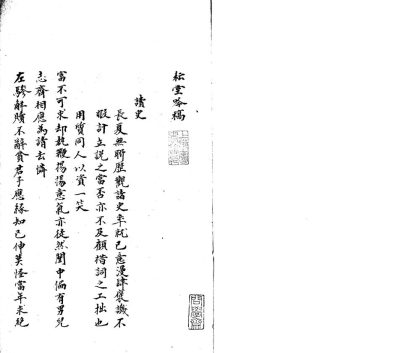 松堂畧稿
讀史
長夏無聊歷觀諸史率就己意漫肆褒譏不
敢計立說之當否亦不及顧措詞之工拙也
用質同人以資一笑
富不可求却執鞭揚揚意氣亦徒然閨中偏有男兒
志齊相應為請去儕
左驂解贖不辭賓君子應緣知己伸莫怪當年求絕